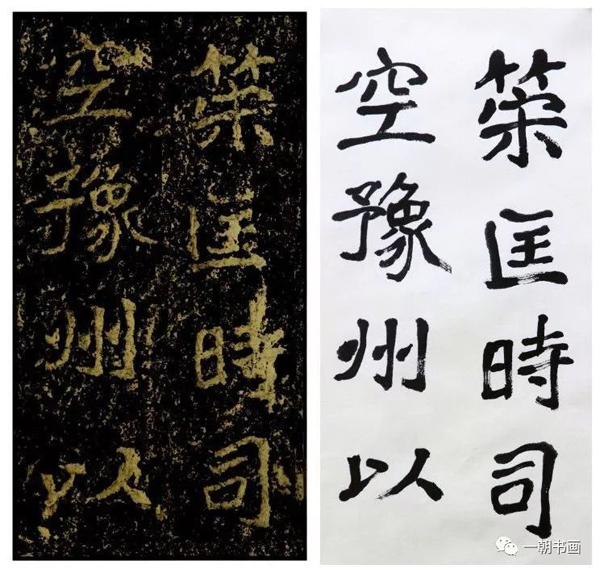 筞匡時司
空豫州以
筞匡時司
空豫州以
一朝书画